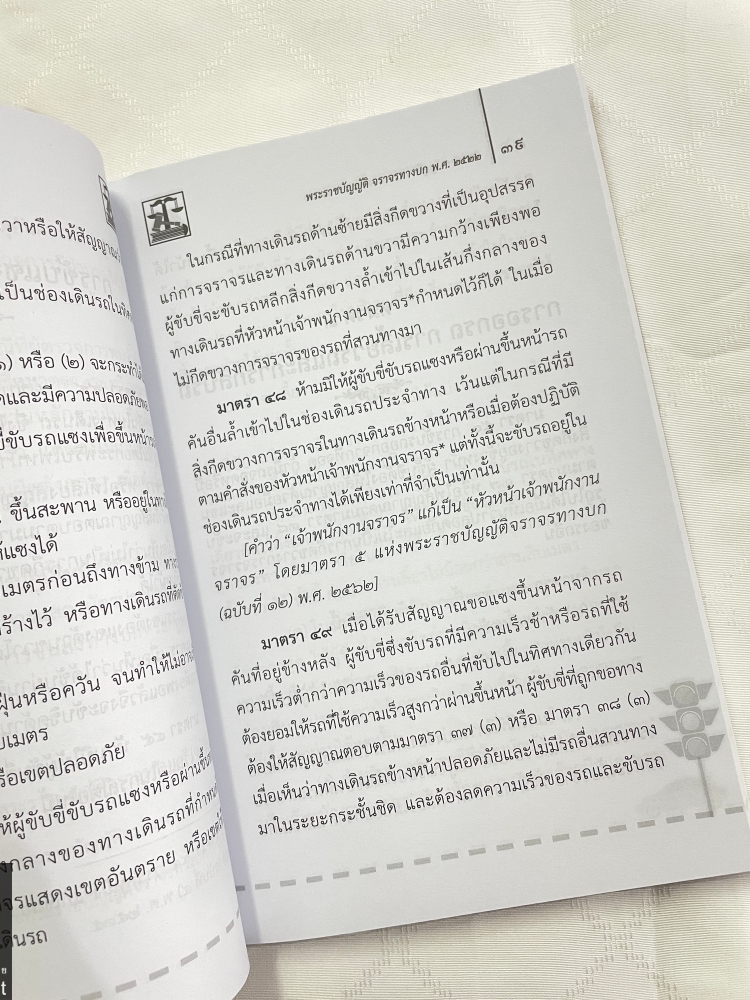 วาหรือให้สัญญาณ
เป็นช่องเดินรถในทิศ
๑) หรือ (๒) จะกระทำได้
และมีความปลอดภัย
ขับรถแซงเพื่อขึ้นหน้ารถ
ขึ้นสะพาน หรืออยู่ในทาง
แซงได้
เมตรก่อนถึงทางข้าม ทาง
ร้างไว้ หรือทางเดินรถที่ตัด
ฝุ่นหรือควัน จนทำให้ไม่อาจ
เมตร
รือเขตปลอดภัย
ให้ผู้ขับขี่ขับรถแซงหรือผ่านขึ้น
งกลางของทางเดินรถที่กำหนด
จรแสดงเขตอันตราย หรือเขต
ดินรถ
พระราชบัญญัติ จราจรทางบก พ.ศ. ๒๕๒๒ ๓๙
ในกรณีที่ทางเดินรถด้านซ้ายมีสิ่งกีดขวางที่เป็นอุปสรรค
แก่การจราจรและทางเดินรถด้านขวามีความกว้างเพียงพอ
ผู้ขับขี่จะขับรถหลีกสิ่งกีดขวางล้ำเข้าไปในเส้นกึ่งกลางของ
ทางเดินรถที่หัวหน้าเจ้าพนักงานจราจร*กำหนดไว้ก็ได้ ในเมื่อ
ไม่กีดขวางการจราจรของรถที่สวนทางมา
มาตรา ๔๘ ห้ามมิให้ผู้ขับขี่ขับรถแซงหรือผ่านขึ้นหน้ารถ
คันอื่นล้ำเข้าไปในช่องเดินรถประจำทาง เว้นแต่ในกรณีที่มี
สิ่งกีดขวางการจราจรในทางเดินรถข้างหน้าหรือเมื่อต้องปฏิบัติ
ตามคำสั่งของหัวหน้าเจ้าพนักงานจราจร* แต่ทั้งนี้จะขับรถอยู่ใน
ช่องเดินรถประจำทางได้เพียงเท่าที่จำเป็นเท่านั้น
[คำว่า “เจ้าพนักงานจราจร” แก้เป็น “หัวหน้าเจ้าพนักงาน
จราจร” โดยมาตรา ๕ แห่งพระราชบัญญัติจราจรทางบก
(ฉบับที่ ๑๒) พ.ศ. ๒๕๖๒]
มาตรา ๔๙ เมื่อได้รับสัญญาณขอแซงขึ้นหน้าจากรถ
คันที่อยู่ข้างหลัง ผู้ขับขี่ซึ่งขับรถที่มีความเร็วช้าหรือรถที่ใช้
ความเร็วต่ำกว่าความเร็วของรถอื่นที่ขับไปในทิศทางเดียวกัน
ต้องยอมให้รถที่ใช้ความเร็วสูงกว่าผ่านขึ้นหน้า ผู้ขับขี่ที่ถูกขอทาง
ต้องให้สัญญาณตอบตามมาตรา ๓๗ (๓) หรือ มาตรา ๓๘ (๓)
เมื่อเห็นว่าทางเดินรถข้างหน้าปลอดภัยและไม่มีรถอื่นสวนทาง
มาในระยะกระชั้นชิด และต้องลดความเร็วของรถและขับรถ